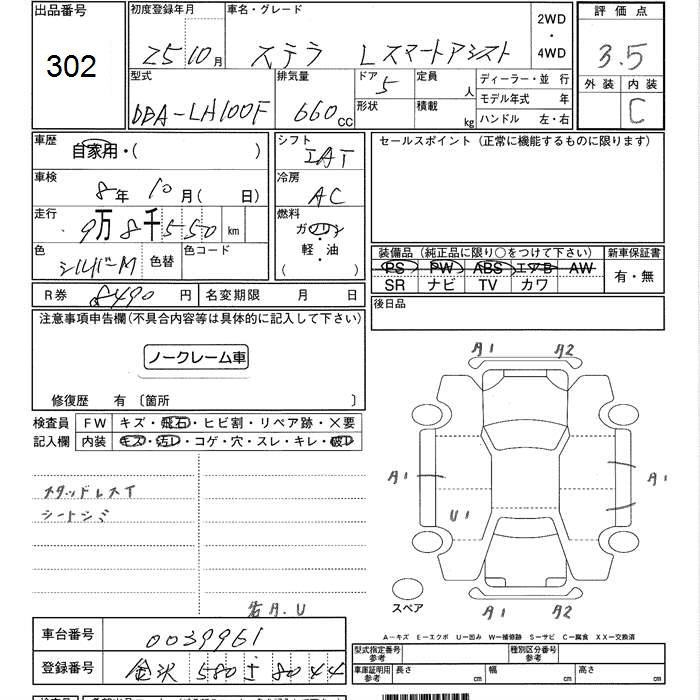 出品番号 初度登録年月 車名・グレード 2WD 評価点
302 25 10月 ステラ Lスマートアシスト ・ 4WD 3.5
型式 排気量 ドア 定員 ディーラー・並行 外装 内装
DBA-LH100F 660cc 5 人 モデル年式 年 C
形状 積載 kg ハンドル 左・右
車歴 自家用・( ) シフト IAT セールスポイント (正常に機能するものに限ります)
車検 8年10月( 日) 冷房 AC
走行 9万8千550 km 燃料 ガソリン 軽・油 ( )
色 シルバーM 色替 色コード
装備品 (純正品に限り○をつけて下さい) 新車保証書
PS PW ABS エアB AW 有・無
SR ナビ TV カワ
R券 8490 円 名変期限 月 日 後日品
注意事項申告欄(不具合内容等は具体的に記入して下さい)
ノークレーム車
修復歴 有 〔箇所 〕
検査員 FW キズ・飛石・ヒビ割・リペア跡・×要
記入欄 内装 キズ・汚レ・コゲ・穴・スレ・キレ・破レ
スタッドレスT
シートシミ
A1 A2
A1 A1
U1
スペア A1 A2
A.U
A-キズ E-エクボ U-凹み W-補修跡 S-サビ C-腐食 XX-交換済
車台番号 0039961
登録番号 金沢 580 8044
型式指定番号 参考 種別区分番号 参考
車庫証明用 参考 長さ cm 幅 cm 高さ cm